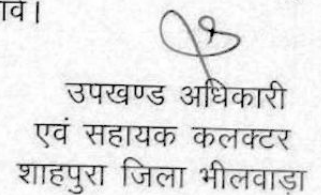 ावे।
उपखण्ड अधिकारी
एवं सहायक कलक्टर
शाहपुरा जिला भीलवाड़ा